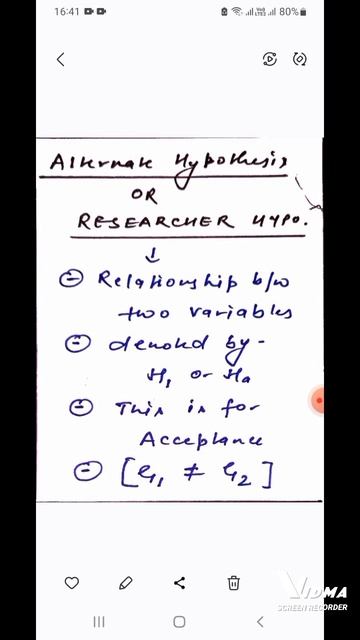 16:41 80%
Alternate Hypothesis
OR
RESEARCHER HYPO.
Relationship b/w
two variables
denoted by -
H₁ or Ha
This is for
Acceptance
[G₁ ≠ G₂]
VIDMA
SCREEN RECORDER